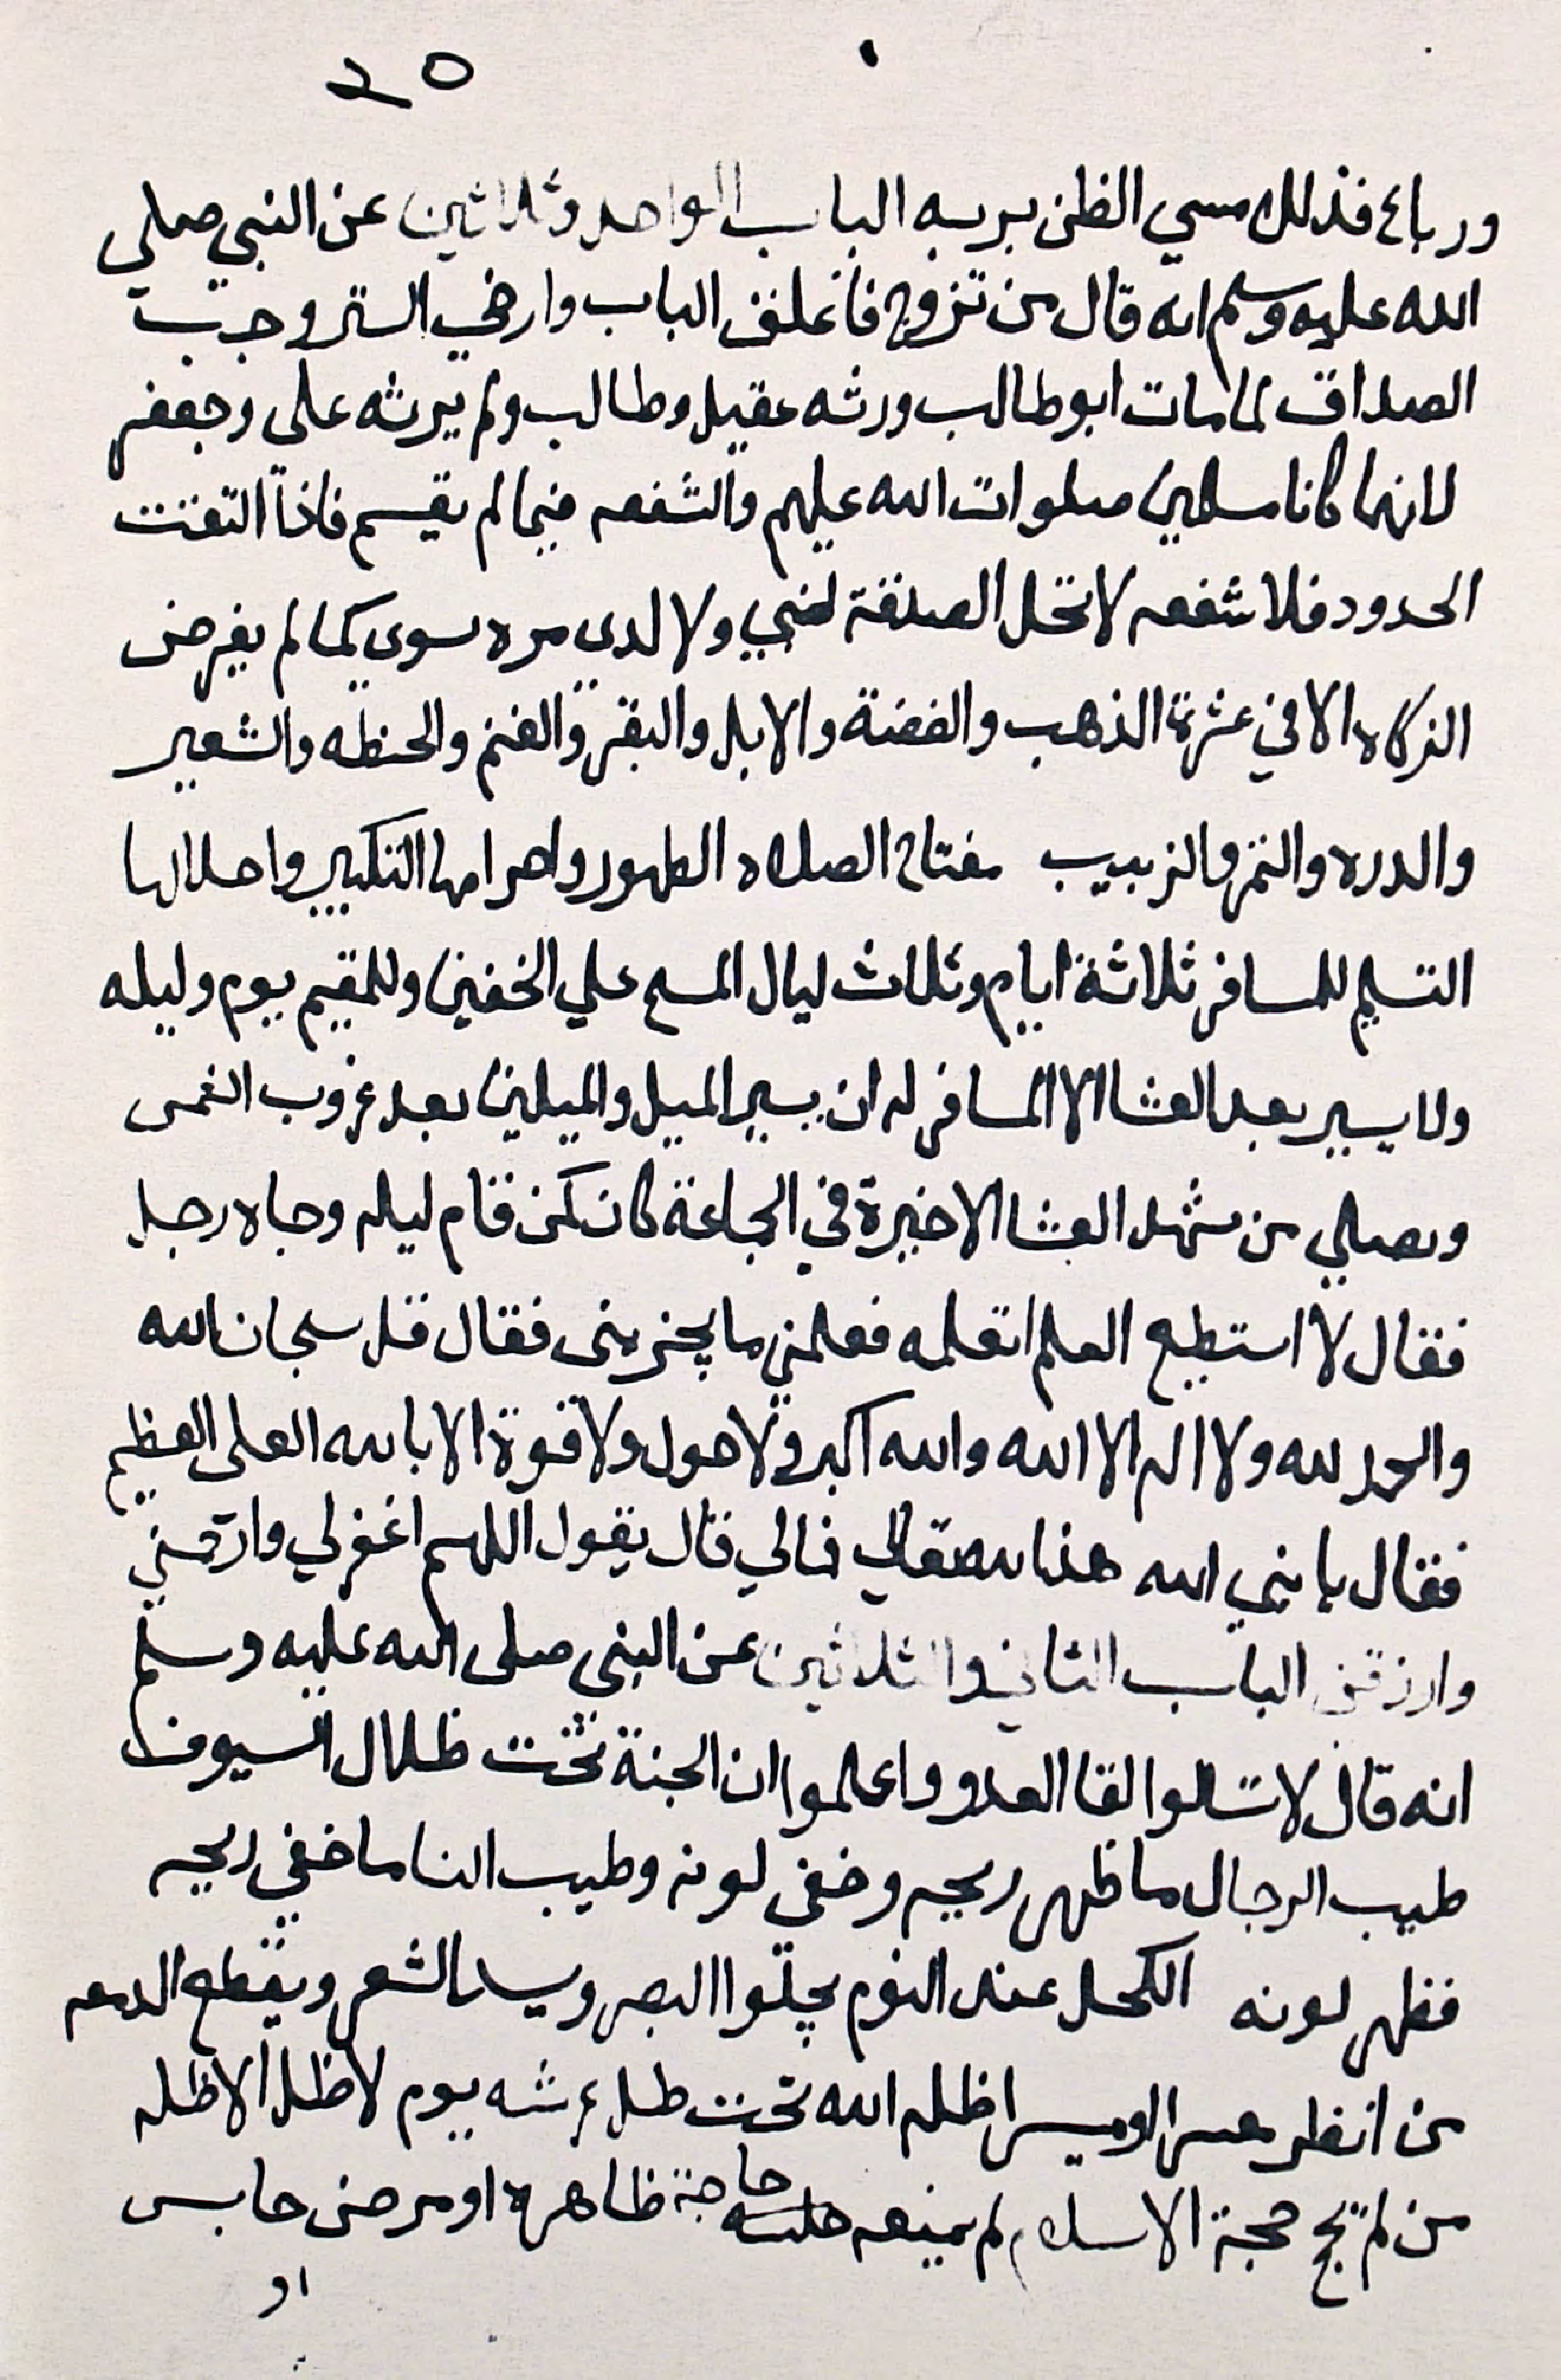 ٣٥
ورباع فذلك مسي الظن بربه الباب الواحد وثلاثين عن النبي صلي
الله عليه وسلم انه قال من تزوج فاغلق الباب وارخي الستر وجبت
الصداق لما مات ابو طالب ورثه عقيل وطالب ولم يرثه علي وجعفر
لانهما كانا مسلمين صلوات الله عليهم والشفعه فيما لم يقسم فاذا التقت
الحدود فلا شفعه لا تحل الصدقة لغني ولا لدى مره سوى كما لم يفرض
الزكاه الا في عشرة الذهب والفضة والابل والبقر والغنم والحنطه والشعير
والدره والتمر والزبيب مفتاح الصلاه الطهور واحرامها التكبير واحلالها
التسليم للمسافر ثلاثة ايام وثلاث ليال المسح علي الخفين وللمقيم يوم وليله
ولا يسير بعد العشا الا المسافر له ان يسير الميل والميلين بعد غروب الشمس
ويصلي من شهد العشا الاخيرة في الجماعة كان كمن قام ليله وجاه رجل
فقال لا استطيع العلم اتعلمه فعلمني ما يجزيني فقال قل سبحان الله
والحمد لله ولا اله الا الله والله اكبر ولا حول ولا قوة الا بالله العلي العظيم
فقال يا نبي الله هذا لله تعالي فمالي قال يقول اللهم اغفر لي وارحمني
وارزقني الباب الثاني والثلاثين عن النبي صلى الله عليه وسلم
انه قال لا تسالوا لقا العدو واعلموا ان الجنة تحت ظلال السيوف
طيب الرجال ما ظهر ريحه وخفي لونه وطيب النسا ما خفي ريحه
فظهر لونه الكحل عند النوم يجلوا البصر ويسد الشعر ويقطع الدمعه
من انظر معسر او ميسر اظله الله تحت ظل عرشه يوم لا ظل الا ظله
من لم يحج حجة الاسلام لم يمنعه حاجة ظاهرة او مرض حابس
او